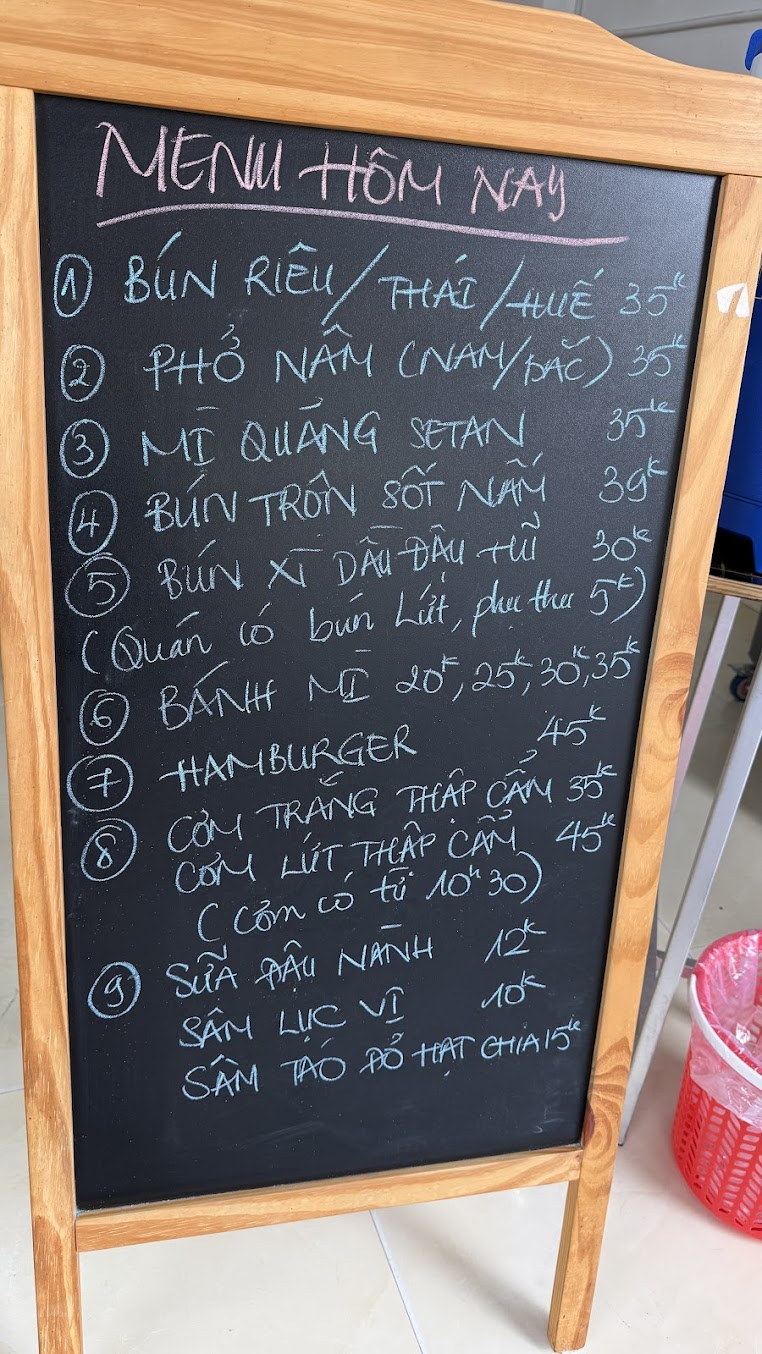 MENU HÔM NAY
1 BÚN RIÊU / THÁI / HUẾ 35k
2 PHỞ NẤM (NAM/BẮC) 35k
3 MÌ QUẢNG SETAN 35k
4 BÚN TRỘN SỐT NẤM 39k
5 BÚN XÌ DẦU ĐẬU HŨ 30k
(Quán có bún Lứt, phụ thu 5k)
6 BÁNH MÌ 20k, 25k, 30k, 35k
7 HAMBURGER 45k
8 CƠM TRẮNG THẬP CẨM 35k
CƠM LỨT THẬP CẨM 45k
(Cơm có từ 10h30)
9 SỮA ĐẬU NÀNH 12k
SÂM LỤC VỊ 10k
SÂM TÁO ĐỎ HẠT CHIA 15k